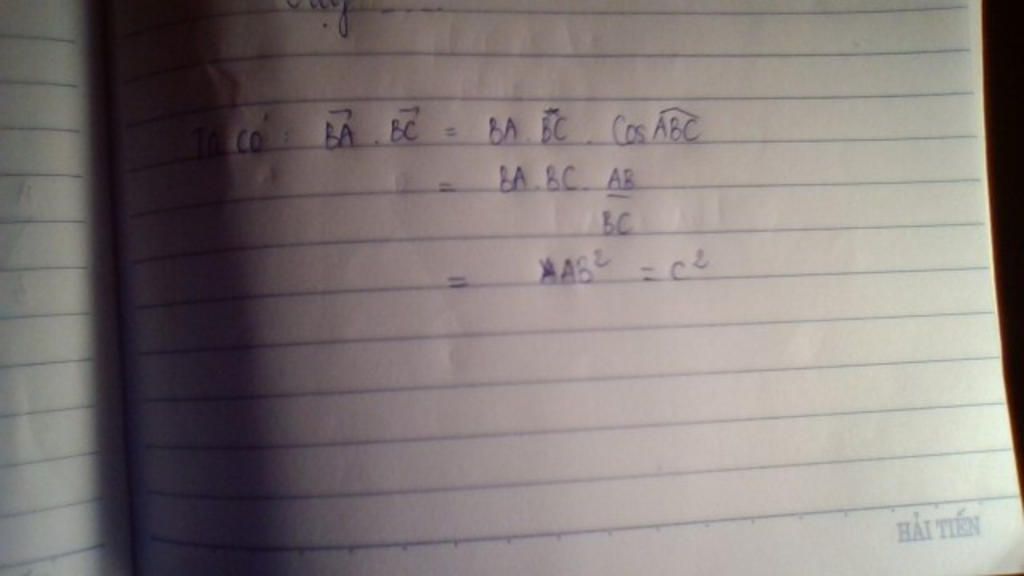 Ta có: $\overrightarrow{BA} . \overrightarrow{BC} = BA . BC . Cos \widehat{ABC}$
$= BA . BC . \frac{AB}{BC}$
$= AB^2 = c^2$
HẢI TIẾN